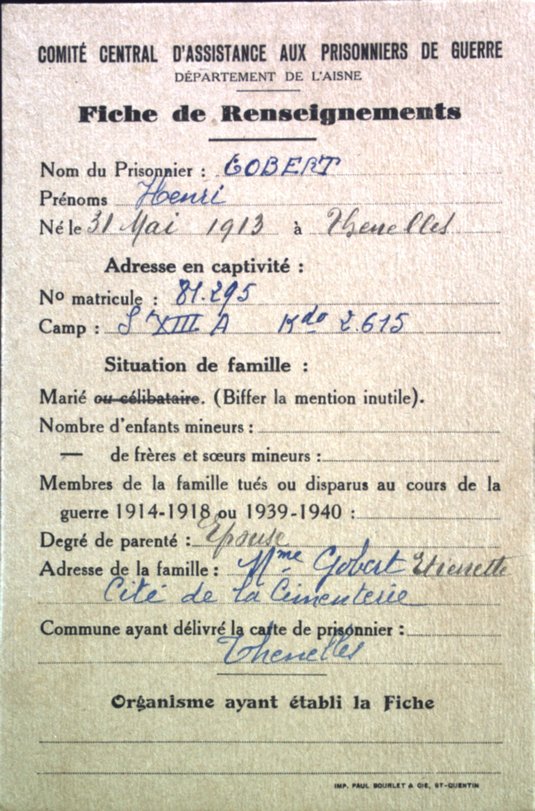 COMITÉ CENTRAL D'ASSISTANCE AUX PRISONNIERS DE GUERRE
DÉPARTEMENT DE L'AISNE
Fiche de Renseignements
Nom du Prisonnier : GOBERT
Prénoms Henri
Né le 31 Mai 1913 à Thenelles
Adresse en captivité :
No matricule : 81.295
Camp : St XIII A Kdo 2.615
Situation de famille :
Marié ou célibataire. (Biffer la mention inutile).
Nombre d'enfants mineurs :
— de frères et sœurs mineurs :
Membres de la famille tués ou disparus au cours de la
guerre 1914-1918 ou 1939-1940 :
Degré de parenté : Epouse
Adresse de la famille : Mme Gobert Etiennette
Cité de la Cimenterie
Commune ayant délivré la carte de prisonnier :
Thenelles
Organisme ayant établi la Fiche
IMP. PAUL BOURLET & CIE, ST-QUENTIN